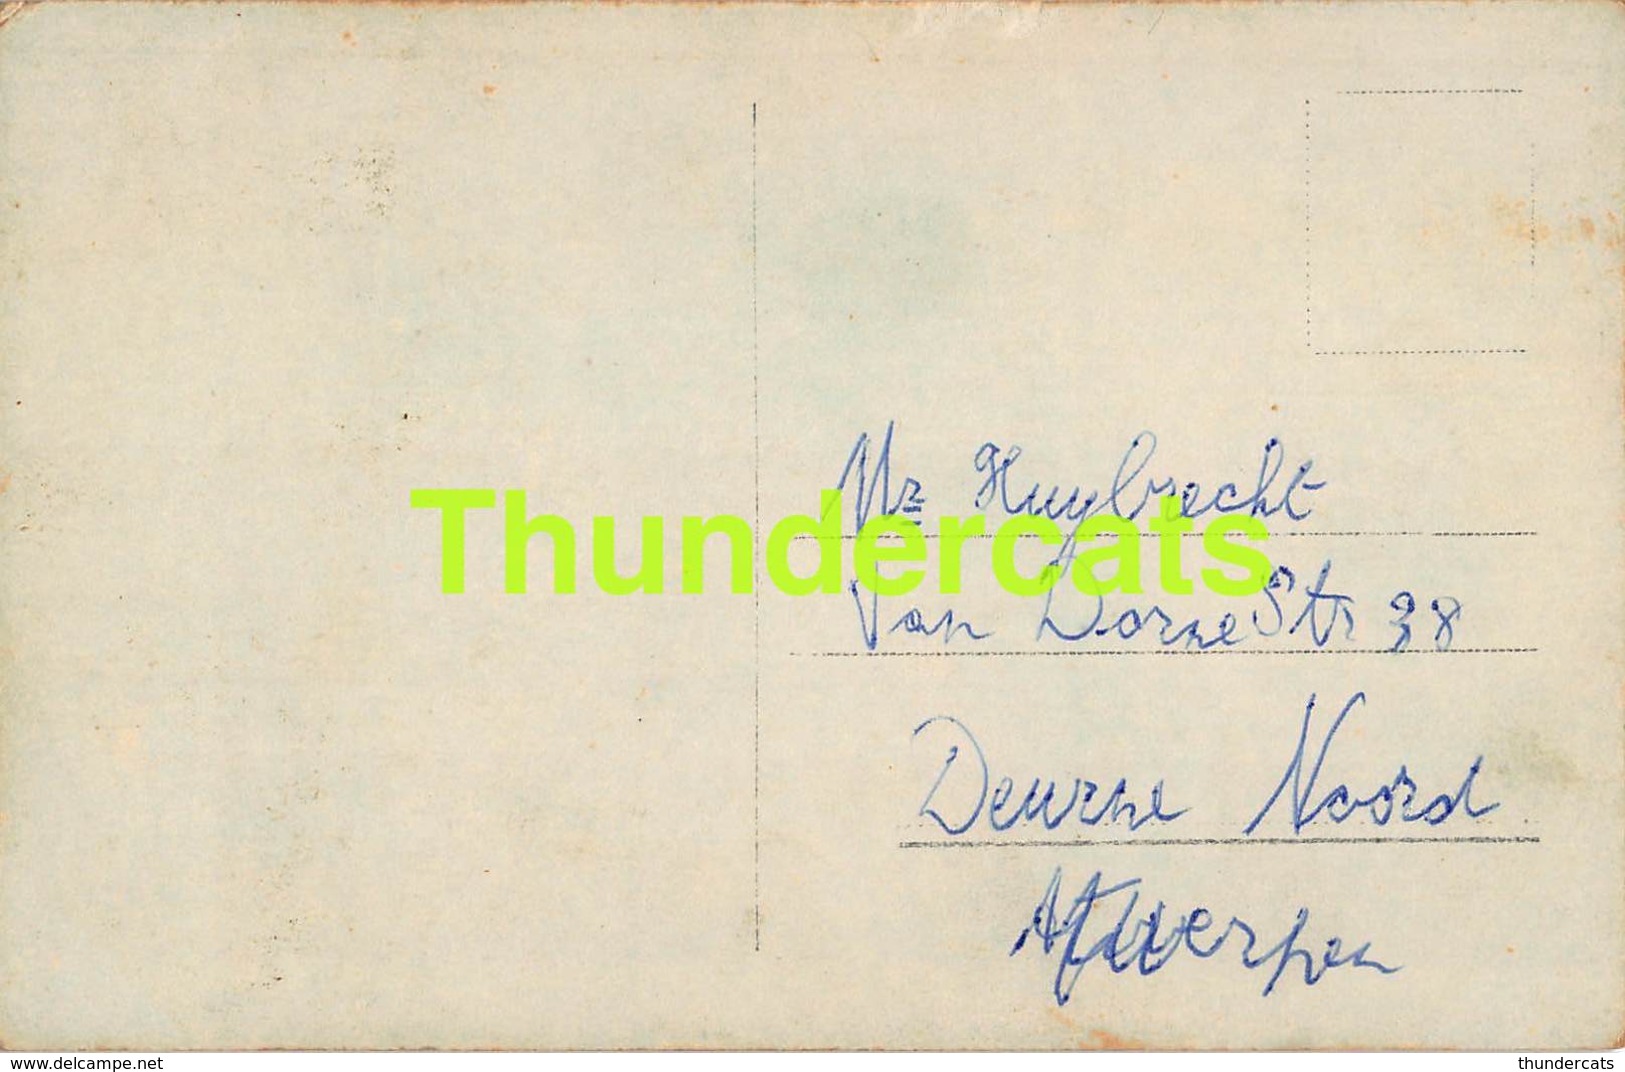 Mr Huybrecht
Thundercats
Van Dorne Str 38
Deurne Noord
Antwerpen
www.delcampe.net
thundercats